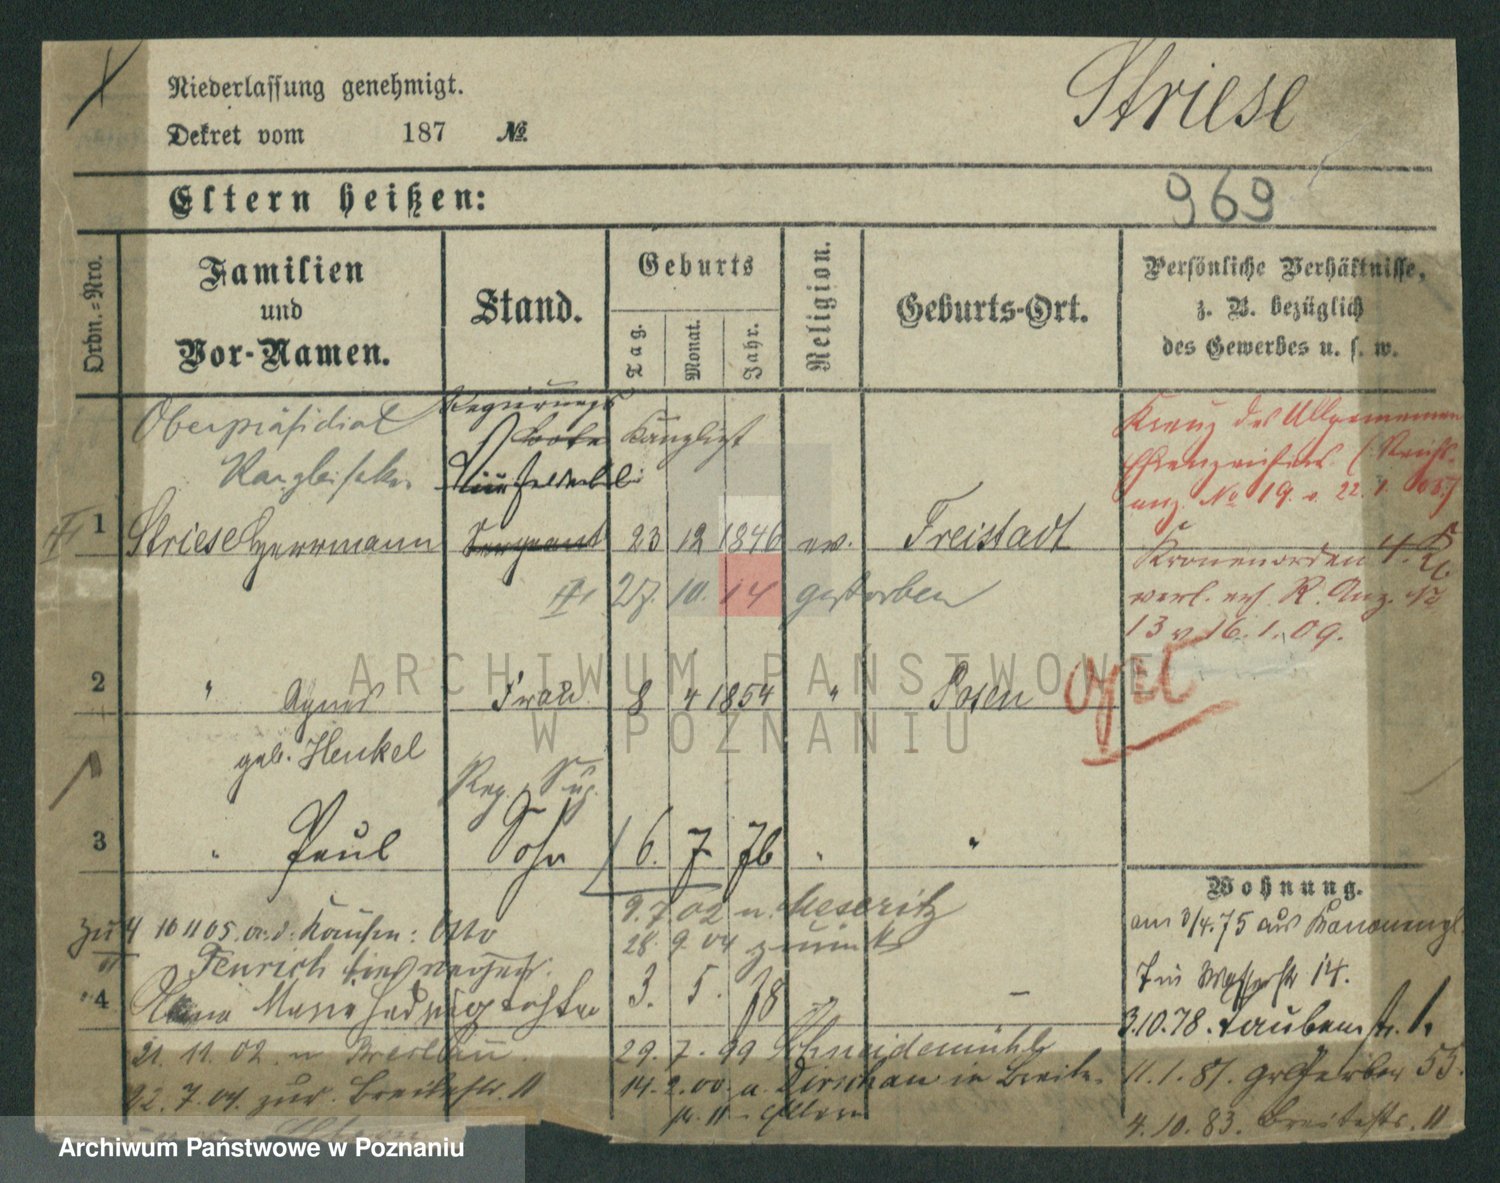 Niederlassung genehmigt.
Striese
Dekret vom 187 №
969
Eltern heißen:
Ordn.-Nro.
Familien und Vor-Namen.
Stand.
Geburts
Tag.
Monat.
Jahr.
Religion.
Geburts-Ort.
Persönliche Verhältnisse,
z. B. bezüglich
des Gewerbes u. s. w.
Oberpräsidial Regierungs
Bote Kanzlist
Kreuz des Allgemeinen
Ehrenzeichens (Reichs-
anz. No 19. v. 22. 1. 05)
1 Striese Herrmann Sergeant 23 12 1846 ev. Freistadt
Kronenorden 4. Kl.
27. 10. 14 gestorben
verl. R. Anz. №
13 v 16. 1. 09.
2 " Agnes Frau 8 4 1854 " Posen
geb. Henkel
Reg. Sup.
3 " Paul Sohn 6. 7. 76 " "
Wohnung.
9. 7. 02 n. Meseritz
am 3/4. 75 aus Kanonenpl.
zu 4 10 11 05. Otto
28. 9. 04 zurück
Fenrich
7 in Wasserstr 14.
4 Anna Marie Hedwig Tochter 3. 5. 78 –
3.10.78. Taubenstr. 1.
21. 11. 02 n Breslau.
29. 7. 99 Schneidemühl
22. 7. 04. zur. Breitestr. 11
14. 2. 00. a. Dirschau in Breite-
11. 1. 81. gr Gerber 55.
str. 11 – Eltern
4. 10. 83. Breitestr. 11
ARCHIWUM PAŃSTWOWE
W POZNANIU
Archiwum Państwowe w Poznaniu